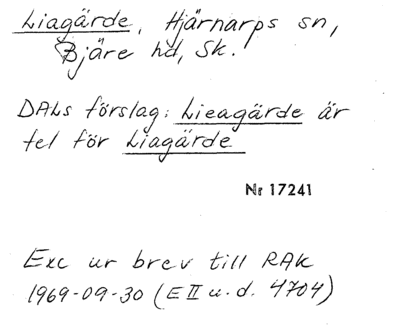 Liagärde, Hjärnarps sn,
Bjäre hd, Sk.
DALs förslag: Lieagärde är
fel för Liagärde
Nr 17241
Exc ur brev till RAK
1969-09-30 (E II u. d. 4704)